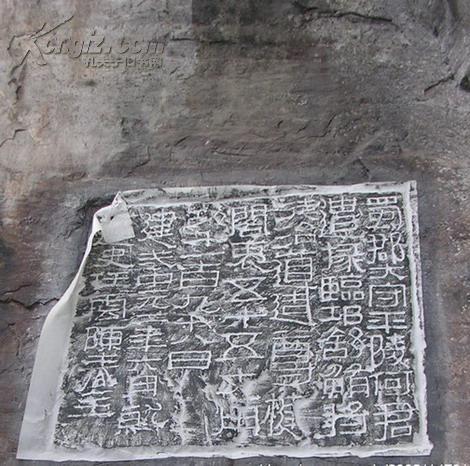 蜀郡大守平陵何君
遣掾臨邛舒鮪將
徒治道造尊楗
閣袤五十五丈用
功千一百九十八日
建武中元二年六月就
道史任雲陳春主
Kongfz.com
孔夫子旧书网